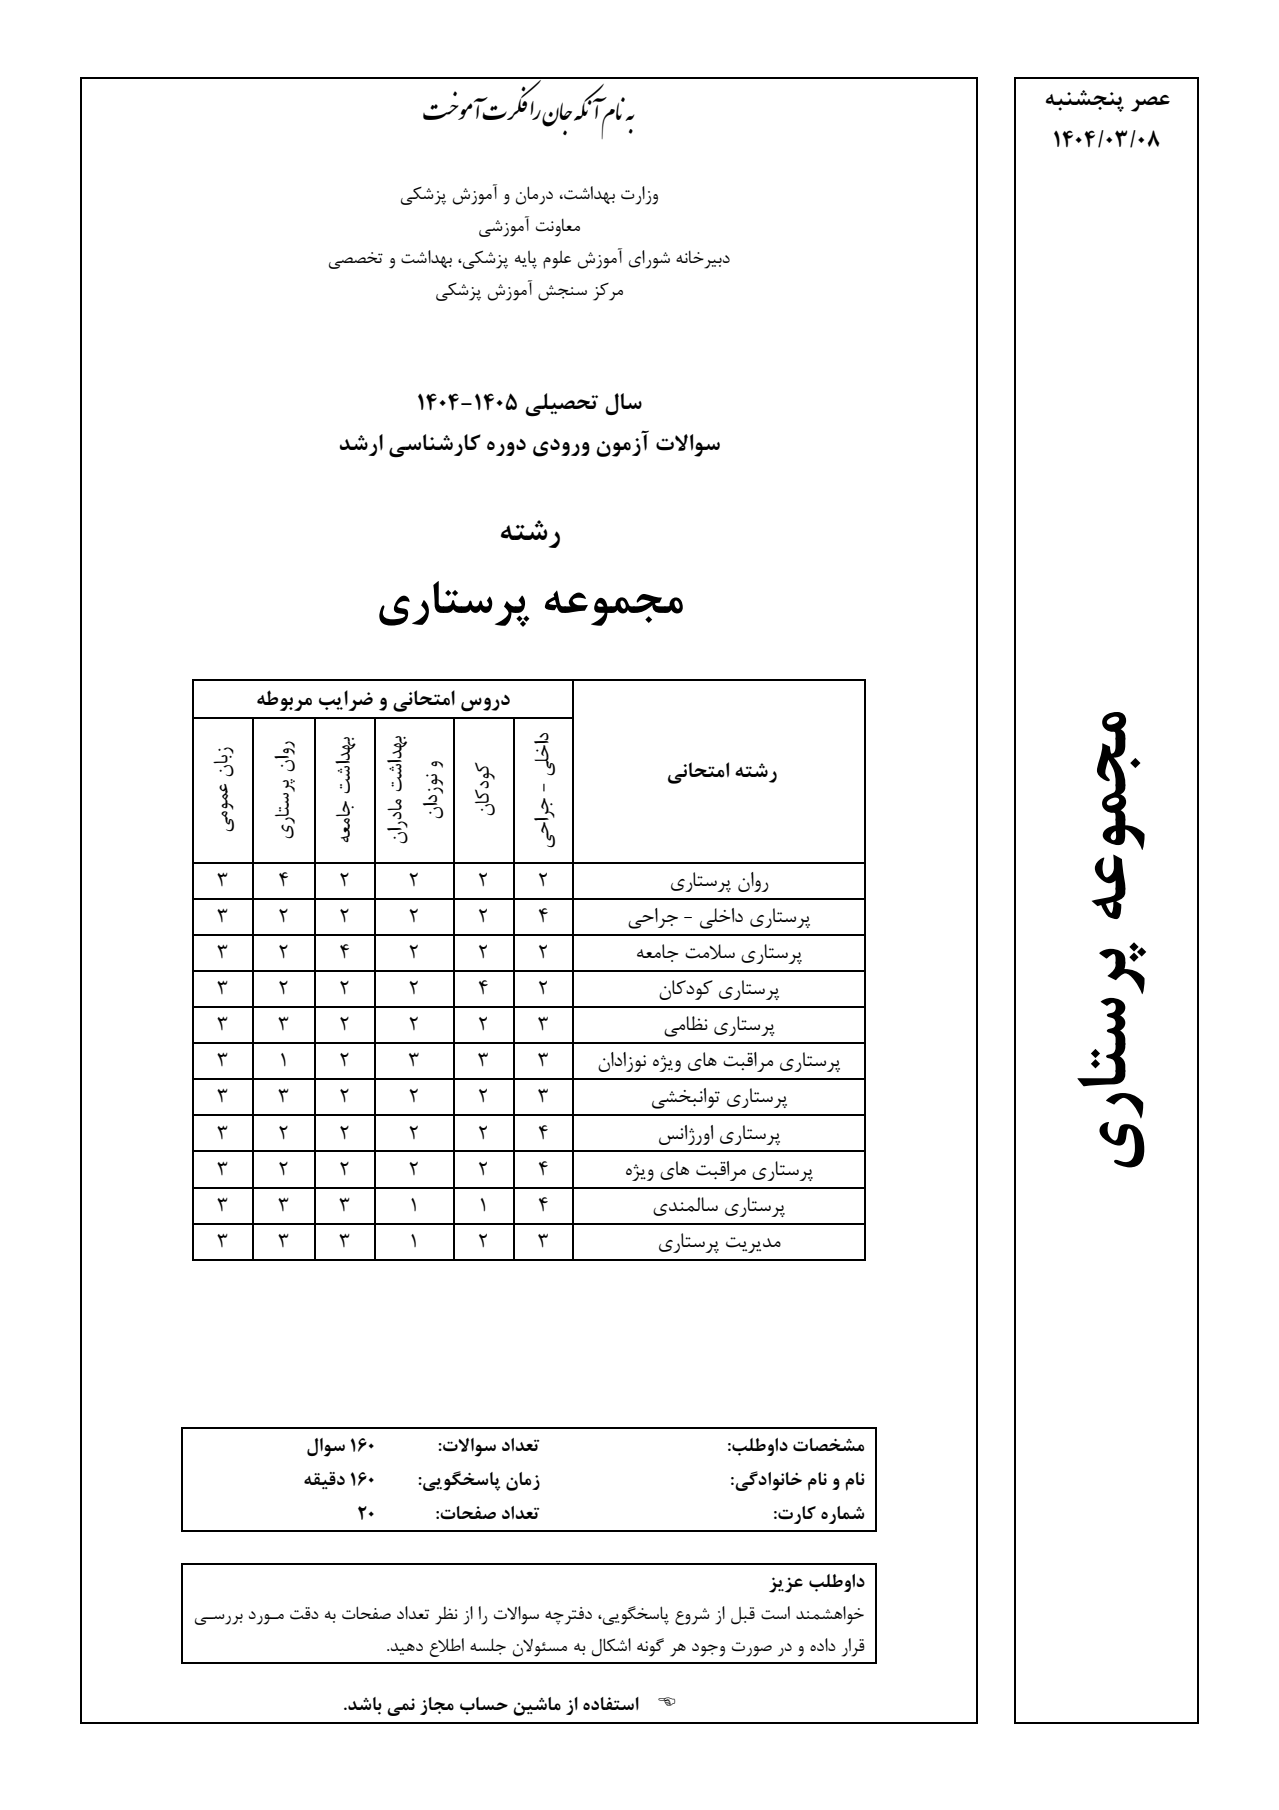 عصر پنجشنبه
۱۴۰۴/۰۳/۰۸
مجموعه پرستاری
به نام آنکه جان را فکرت آموخت
وزارت بهداشت، درمان و آموزش پزشکی
معاونت آموزشی
دبیرخانه شورای آموزش علوم پایه پزشکی، بهداشت و تخصصی
مرکز سنجش آموزش پزشکی
سال تحصیلی ۱۴۰۵-۱۴۰۴
سوالات آزمون ورودی دوره کارشناسی ارشد
رشته
مجموعه پرستاری
رشته امتحانی
دروس امتحانی و ضرایب مربوطه
داخلی - جراحی
کودکان
بهداشت مادران
و نوزدان
بهداشت جامعه
روان پرستاری
زبان عمومی
روان پرستاری ۲ ۲ ۲ ۲ ۴ ۳
پرستاری داخلی - جراحی ۴ ۲ ۲ ۲ ۲ ۳
پرستاری سلامت جامعه ۲ ۲ ۲ ۴ ۲ ۳
پرستاری کودکان ۲ ۴ ۲ ۲ ۲ ۳
پرستاری نظامی ۳ ۲ ۲ ۲ ۳ ۳
پرستاری مراقبت های ویژه نوزادان ۳ ۳ ۳ ۲ ۱ ۳
پرستاری توانبخشی ۳ ۲ ۲ ۲ ۳ ۳
پرستاری اورژانس ۴ ۲ ۲ ۲ ۲ ۳
پرستاری مراقبت های ویژه ۴ ۲ ۲ ۲ ۲ ۳
پرستاری سالمندی ۴ ۱ ۱ ۳ ۳ ۳
مدیریت پرستاری ۳ ۲ ۱ ۳ ۳ ۳
مشخصات داوطلب: تعداد سوالات: ۱۶۰ سوال
نام و نام خانوادگی: زمان پاسخگویی: ۱۶۰ دقیقه
شماره کارت: تعداد صفحات: ۲۰
داوطلب عزیز
خواهشمند است قبل از شروع پاسخگویی، دفترچه سوالات را از نظر تعداد صفحات به دقت مـورد بررسـی
قرار داده و در صورت وجود هر گونه اشکال به مسئولان جلسه اطلاع دهید.
☜ استفاده از ماشین حساب مجاز نمی باشد.